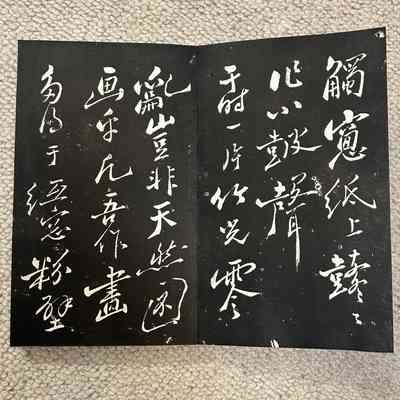 觸窓紙上鼕〻
作小鼓聲
于时一片竹零
亂豈非天然圖
画乎凡吾作畫
多得于紙窓粉壁